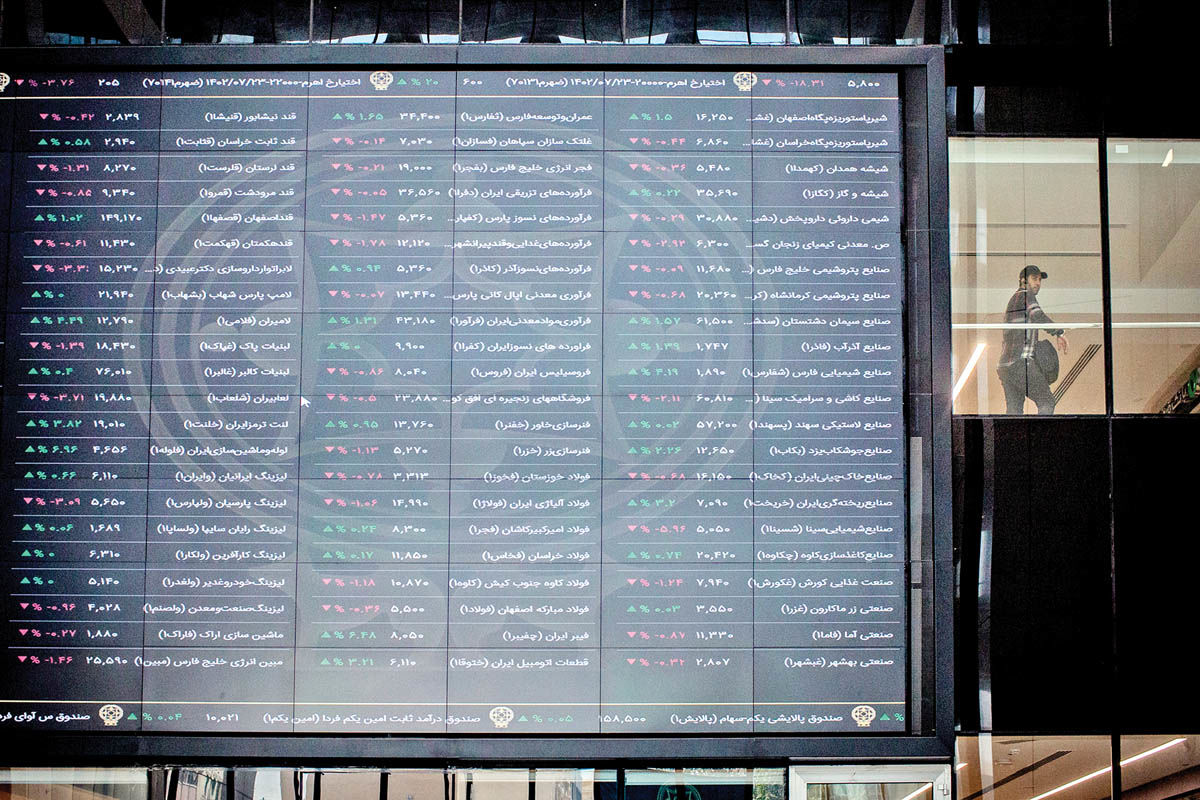 ۵,۸۰۰ ▼ % -۱۸.۳۱ اختیارخ اهرم-۲۰۰۰۰-۱۴۰۲/۰۷/۲۳ (ضهرم۷۰۱۳۱) ۶۰۰ ▲ % ۲۰ اختیارخ اهرم-۲۲۰۰۰-۱۴۰۲/۰۷/۲۳ (ضهرم۷۰۱۴۱) ۲۰۵ ▼ % -۳.۷۶
شیرپاستوریزه‌پگاه‌اصفهان (غشـ... ۱۶,۲۵۰ ▲ % ۱.۵ عمران‌وتوسعه‌فارس (ثفارس۱) ۳۴,۴۰۰ ▲ % ۱.۶۵ قند نیشابور (قنیشا۱) ۲,۸۳۹ ▼ % -۰.۴۲
شیرپاستوریزه‌پگاه‌خراسان (غشا... ۶,۸۶۰ ▼ % -۰.۴۴ غلتک سازان سپاهان (فسازان۱) ۷,۰۳۰ ▼ % -۰.۱۴ قند ثابت خراسان (قثابت۱) ۲,۹۴۰ ▲ % ۰.۵۸
شیشه همدان (کهمدا۱) ۵,۴۸۰ ▼ % -۰.۳۶ فجر انرژی خلیج فارس (بفجر۱) ۱۹,۰۰۰ ▼ % -۰.۲۱ قند لرستان (قلرست۱) ۸,۲۷۰ ▼ % -۱.۳۱
شیشه و گاز (کگاز۱) ۳۵,۶۹۰ ▲ % ۰.۲۲ فرآورده‌های تزریقی ایران (دفرا۱) ۳۶,۵۶۰ ▼ % -۰.۰۵ قند مرودشت (قمرو۱) ۹,۳۴۰ ▼ % -۰.۸۵
شیمی داروئی داروپخش (دشیـ... ۳۰,۸۸۰ ▼ % -۰.۲۹ فرآورده‌های نسوز پارس (کفپار... ۵,۳۶۰ ▼ % -۱.۴۷ قنداصفهان (قصفها۱) ۱۴۹,۱۷۰ ▲ % ۱.۰۲
ص. معدنی کیمیای زنجان گسـ... ۶,۳۰۰ ▼ % -۲.۹۲ فرآورده‌های‌غذایی‌وقندپیرانشهر... ۱۲,۱۲۰ ▼ % -۱.۷۸ قندهکمتان (قهکمت۱) ۱۱,۴۳۰ ▼ % -۰.۶۱
صنایع پتروشیمی خلیج فارس (... ۱۱,۶۸۰ ▼ % -۰.۰۹ فرآورده‌های‌نسوزآذر (کاذر۱) ۵,۳۶۰ ▲ % ۰.۹۴ لابراتوارداروسازی دکترعبیدی (د... ۱۵,۲۳۰ ▼ % -۳.۳
صنایع پتروشیمی کرمانشاه (کر... ۲۰,۳۶۰ ▼ % -۰.۶۸ فرآوری معدنی اپال کانی پارس... ۱۳,۴۴۰ ▼ % -۰.۰۷ لامپ پارس شهاب (بشهاب۱) ۲۱,۹۴۰ ▲ % ۰
صنایع سیمان دشتستان (سدشـ... ۶۱,۵۰۰ ▲ % ۱.۵۷ فرآوری‌موادمعدنی‌ایران (فرآور۱) ۴۳,۱۸۰ ▲ % ۱.۳۱ لامیران (فلامی۱) ۱۲,۷۹۰ ▲ % ۴.۴۹
صنایع آذرآب (فاذر۱) ۱,۷۴۷ ▲ % ۱.۳۹ فراورده های نسوزایران (کفرا۱) ۹,۹۰۰ ▲ % ۰ لبنیات پاک (غپاک۱) ۱۸,۴۳۰ ▼ % -۱.۳۹
صنایع شیمیایی فارس (شفارس۱) ۱,۸۹۰ ▲ % ۴.۱۹ فروسیلیس ایران (فروس۱) ۸,۰۴۰ ▼ % -۰.۸۶ لبنیات کالبر (غالبر۱) ۷۶,۰۱۰ ▲ % ۰.۴
صنایع کاشی و سرامیک سینا (... ۶۰,۸۱۰ ▼ % -۲.۱۱ فروشگاههای زنجیره ای افق کو... ۲۳,۸۸۰ ▼ % -۰.۵ لعابیران (شلعاب۱) ۱۹,۸۸۰ ▼ % -۳.۷۱
صنایع لاستیکی سهند (پسهند۱) ۵۷,۲۰۰ ▲ % ۰.۰۲ فنرسازی‌خاور (خفنر۱) ۱۳,۷۶۰ ▲ % ۰.۹۵ لنت ترمزایران (خلنت۱) ۱۹,۰۱۰ ▲ % ۳.۸۲
صنایع‌جوشکاب‌یزد (بکاب۱) ۱۲,۶۵۰ ▲ % ۲.۲۶ فنرسازی‌زر (خزر۱) ۵,۲۷۰ ▼ % -۱.۱۳ لوله‌وماشین‌سازی‌ایران (فلوله۱) ۴,۶۵۶ ▲ % ۶.۹۶
صنایع‌خاک‌چینی‌ایران (کخاک۱) ۱۶,۱۵۰ ▼ % -۰.۶۸ فولاد خوزستان (فخوز۱) ۳,۳۱۳ ▼ % -۰.۷۸ لیزینگ ایرانیان (وایران۱) ۶,۱۱۰ ▲ % ۰.۶۶
صنایع‌ریخته‌گری‌ایران (خریخت۱) ۷,۰۹۰ ▲ % ۳.۲ فولاد آلیاژی ایران (فولاژ۱) ۱۴,۹۹۰ ▼ % -۱.۰۶ لیزینگ پارسیان (ولپارس۱) ۵,۶۵۰ ▼ % -۳.۰۹
صنایع‌شیمیایی‌سینا (شسینا۱) ۵,۰۵۰ ▼ % -۵.۹۶ فولاد امیرکبیرکاشان (فجر۱) ۸,۳۰۰ ▲ % ۰.۲۴ لیزینگ رایان سایپا (ولساپا۱) ۱,۶۸۹ ▲ % ۰.۰۶
صنایع‌کاغذسازی‌کاوه (چکاوه۱) ۲۰,۴۲۰ ▲ % ۰.۷۴ فولاد خراسان (فخاس۱) ۱۱,۸۵۰ ▲ % ۰.۱۷ لیزینگ کارآفرین (ولکار۱) ۶,۳۱۰ ▲ % ۰
صنعت غذایی کورش (غکورش۱) ۷,۹۴۰ ▼ % -۱.۲۴ فولاد کاوه جنوب کیش (کاوه۱) ۱۰,۸۷۰ ▼ % -۱.۱۸ لیزینگ‌خودروغدیر (ولغدر۱) ۵,۱۴۰ ▲ % ۰
صنعتی زر ماکارون (غزر۱) ۳,۵۵۰ ▲ % ۰.۰۳ فولاد مبارکه اصفهان (فولاد۱) ۵,۵۰۰ ▼ % -۰.۳۶ لیزینگ‌صنعت‌ومعدن (ولصنم۱) ۴,۰۲۸ ▼ % -۰.۹۶
صنعتی آما (فاما۱) ۱۱,۳۳۰ ▼ % -۰.۸۷ فیبر ایران (چفیبر۱) ۸,۰۵۰ ▲ % ۶.۴۸ ماشین سازی اراک (فاراک۱) ۱,۸۸۰ ▼ % -۰.۲۷
صنعتی بهشهر (غبشهر۱) ۲,۸۰۷ ▼ % -۰.۳۲ قطعات اتومبیل ایران (ختوقا۱) ۶,۱۱۰ ▲ % ۳.۲۱ مبین انرژی خلیج فارس (مبین۱) ۲۵,۵۹۰ ▼ % -۱.۴۶
▲ % صندوق پالایشی یکم-سهام (پالایش۱) ۱۵۸,۵۰۰ ▲ % ۰.۰۵ صندوق درآمد ثابت امین یکم فردا (امین یکم۱) ۱۰,۰۲۱ ▲ % ۰.۰۴ صندوق س آوای